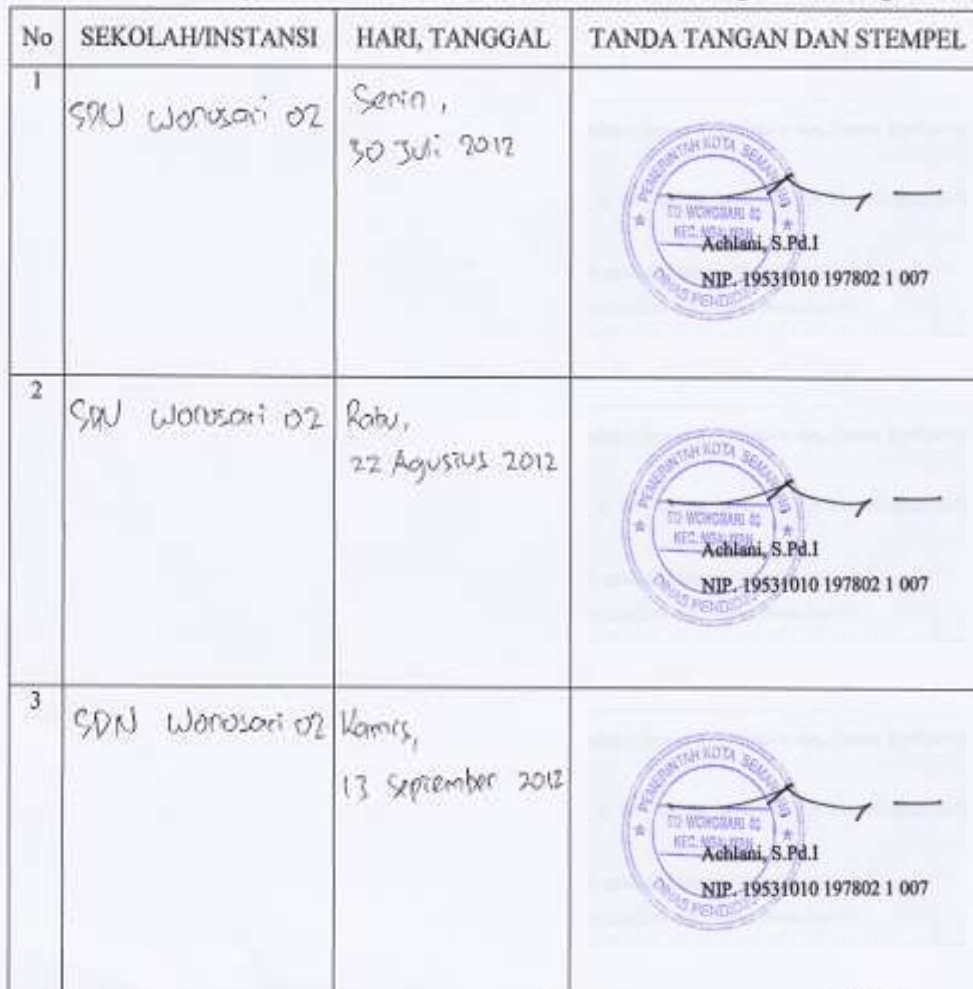 No SEKOLAH/INSTANSI HARI, TANGGAL TANDA TANGAN DAN STEMPEL
1
SDN Wonosari 02
Senin,
30 Juli 2012
PEMERINTAH KOTA SEMARANG
SD WONOSARI 02
KEC. NGALIYAN
DINAS PENDIDIKAN
Achlani, S.Pd.I
NIP. 19531010 197802 1 007
2
SDN Wonosari 02
Rabu,
22 Agustus 2012
PEMERINTAH KOTA SEMARANG
SD WONOSARI 02
KEC. NGALIYAN
DINAS PENDIDIKAN
Achlani, S.Pd.I
NIP. 19531010 197802 1 007
3
SDN Wonosari 02
Kamis,
13 September 2012
PEMERINTAH KOTA SEMARANG
SD WONOSARI 02
KEC. NGALIYAN
DINAS PENDIDIKAN
Achlani, S.Pd.I
NIP. 19531010 197802 1 007